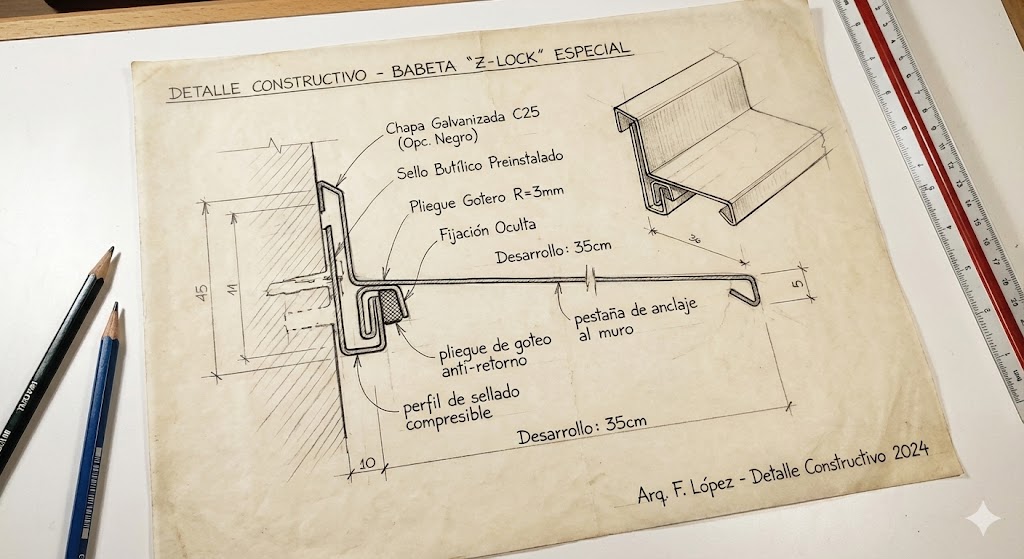 DETALLE CONSTRUCTIVO - BABETA "Z-LOCK" ESPECIAL
Chapa Galvanizada C25
(Opc. Negro)
Sello Butílico Preinstalado
Pliegue Gotero R=3mm
Fijación Oculta
Desarrollo: 35cm
36
45
5
pestaña de anclaje
al muro
pliegue de goteo
anti-retorno
perfil de sellado
compresible
Desarrollo: 35cm
10
Arq. F. López - Detalle Constructivo 2024